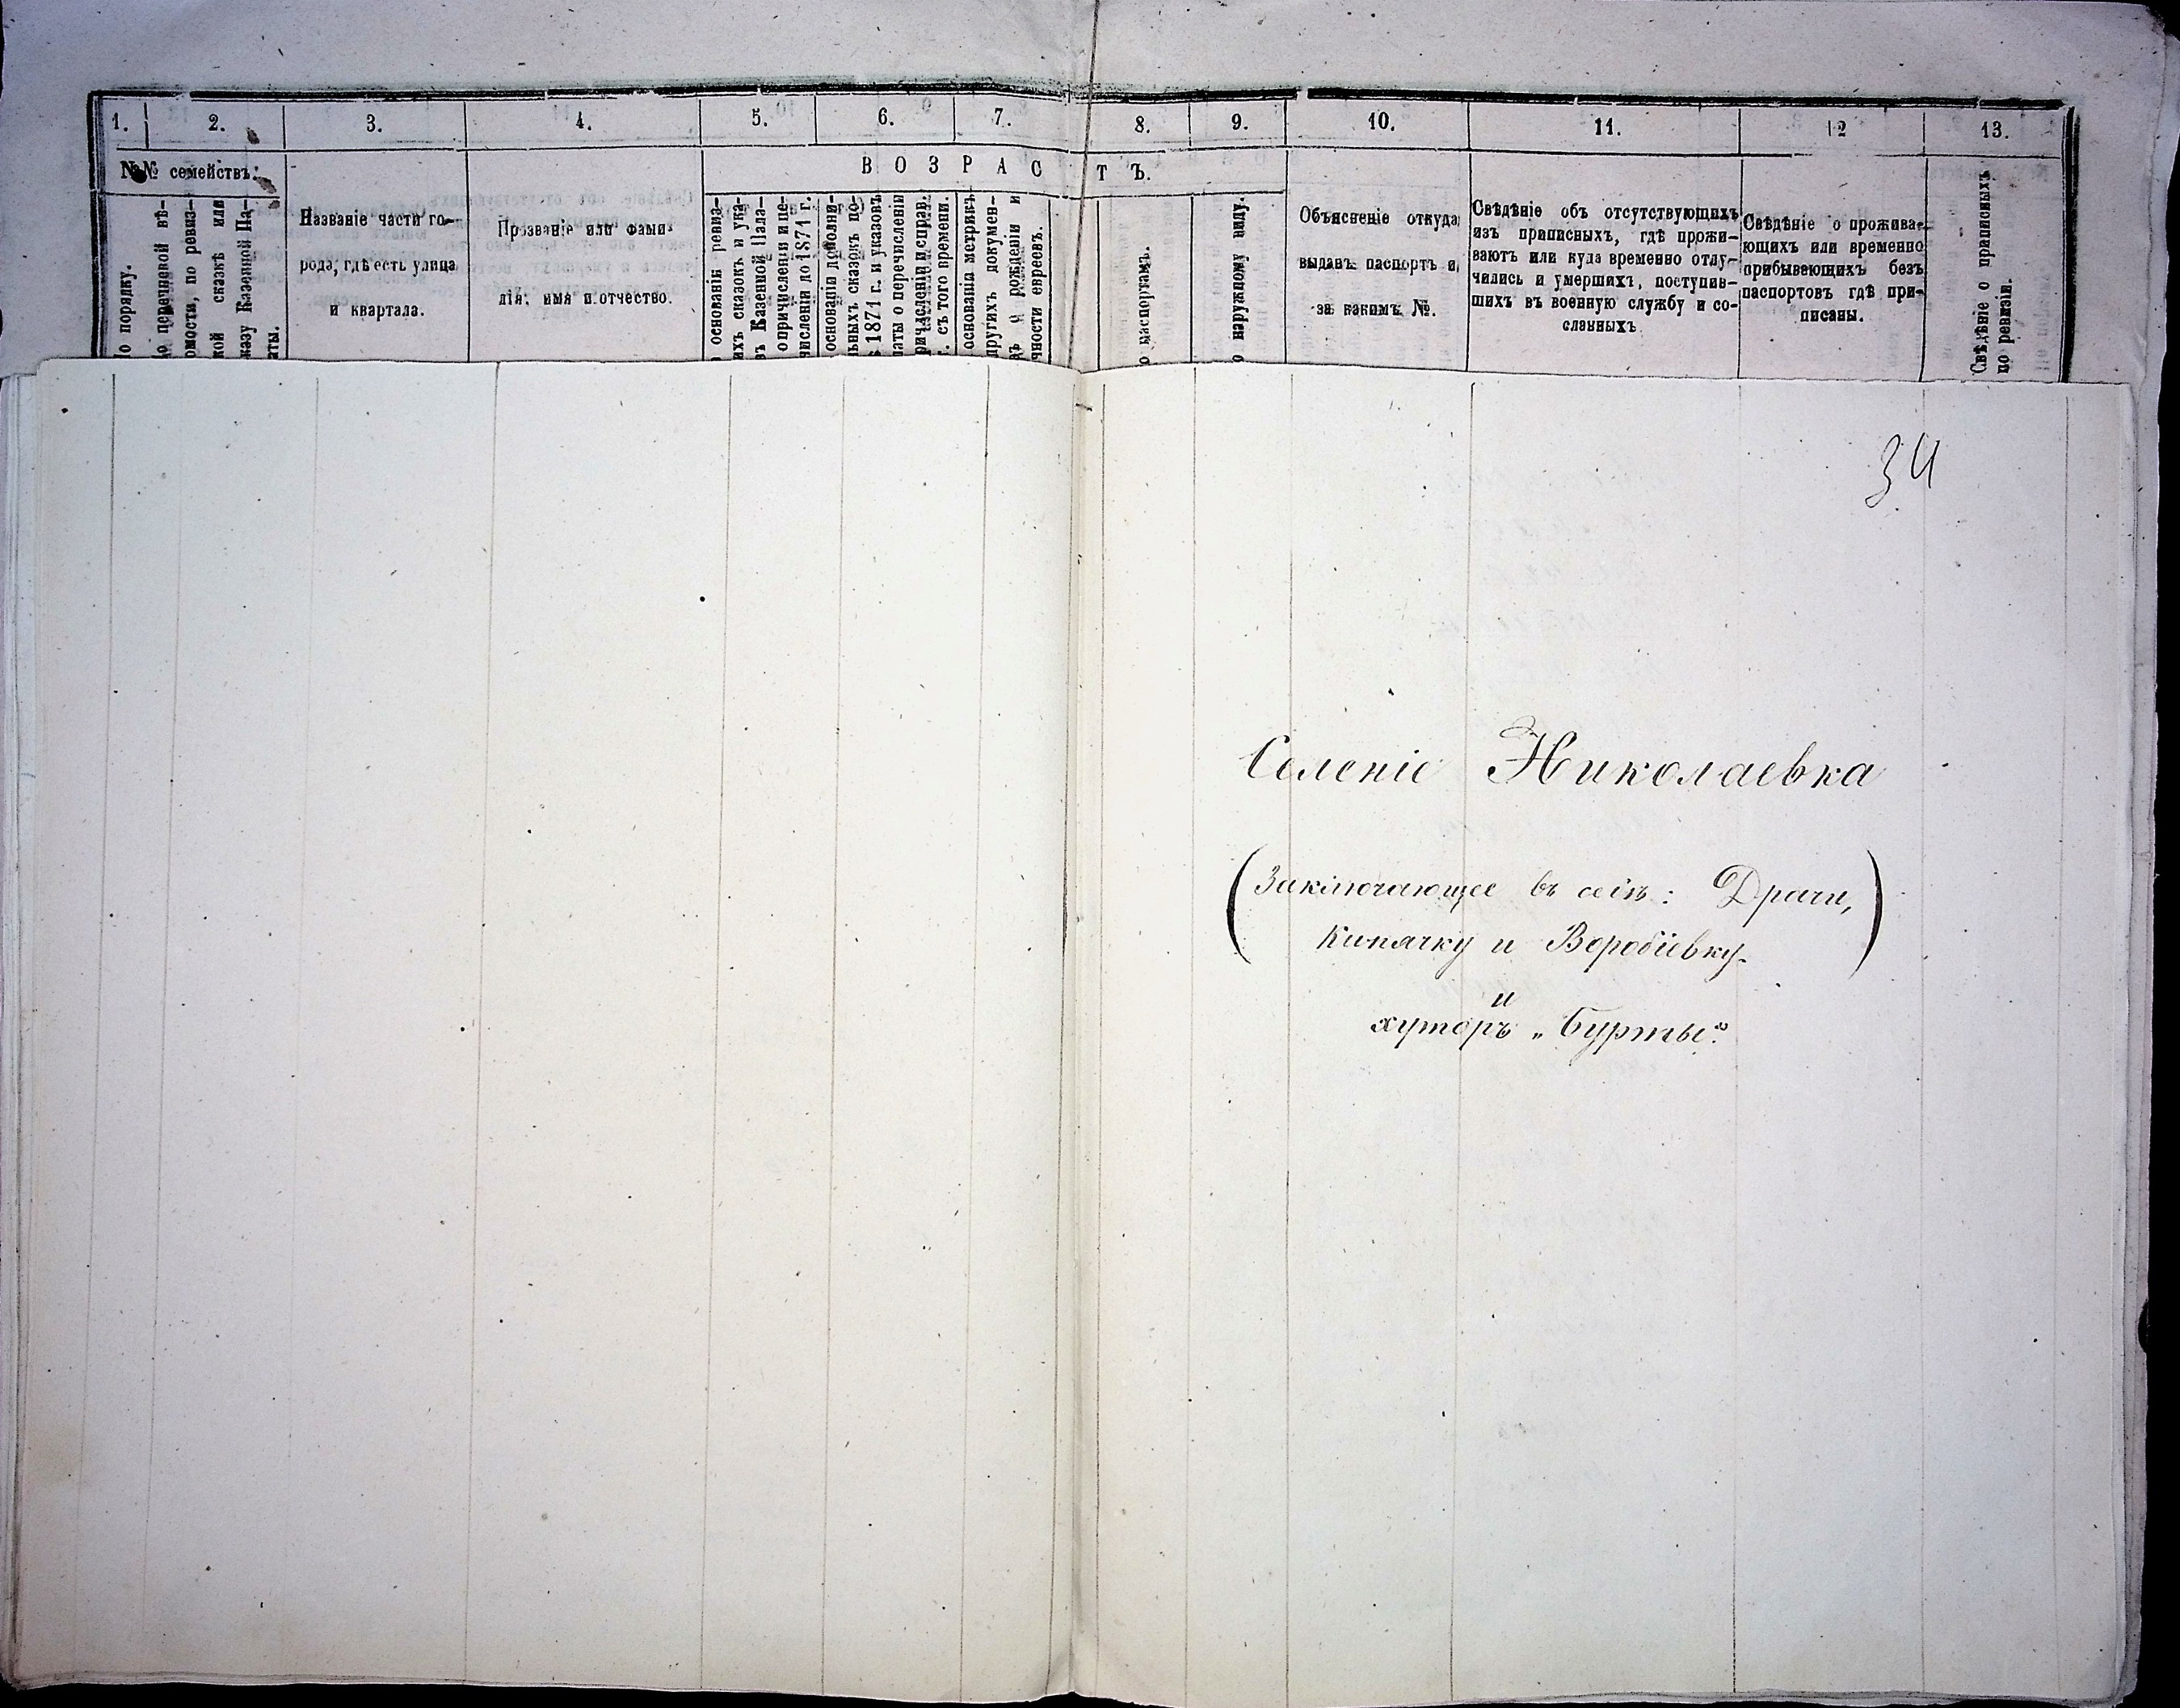 1. 2. 3. 4. 5. 6. 7. 8. 9. 10. 11. 12 13.
№№ семействъ.
В О З Р А С Т Ъ.
о порядку.
о перечневой вѣ-
омости, по ревиз-
кой сказкѣ или
казу Казенной Па-
аты.
Названіе части го-
рода, гдѣ есть улица
и квартала.
Прозваніе или фами-
лія, имя и отчество.
о основаніи ревиз-
ихъ сказокъ и ука-
въ Казенной Пала-
о причисленіи и пе-
численіи до 1871 г.
основаніи дополни-
ьныхъ сказокъ по-
1871 г. и указовъ
латы о перечисленіи
причисленіи и справ.
г. съ того времени.
основаніи метрикъ
других докумен-
ъ о рожденіи и
чности евреевъ.
о паспортамъ.
о наружному виду.
Объясненіе откуда
выданъ паспортъ и
за какимъ №.
Свѣдѣніе объ отсутствующихъ
изъ приписныхъ, гдѣ прожи-
ваютъ или куда временно отлу-
чились и умершихъ, поступив-
шихъ въ военную службу и со-
сланныхъ
Свѣдѣніе о прожива-
ющихъ или временно
прибывающихъ безъ
паспортовъ гдѣ при-
писаны.
Свѣдѣніе о приписныхъ
по ревизіи.
34
Селеніе Николаевка
(Заключающее въ себѣ: Драчи,
Кипячку и Воробіевку)
и
хуторъ „Бурты“.